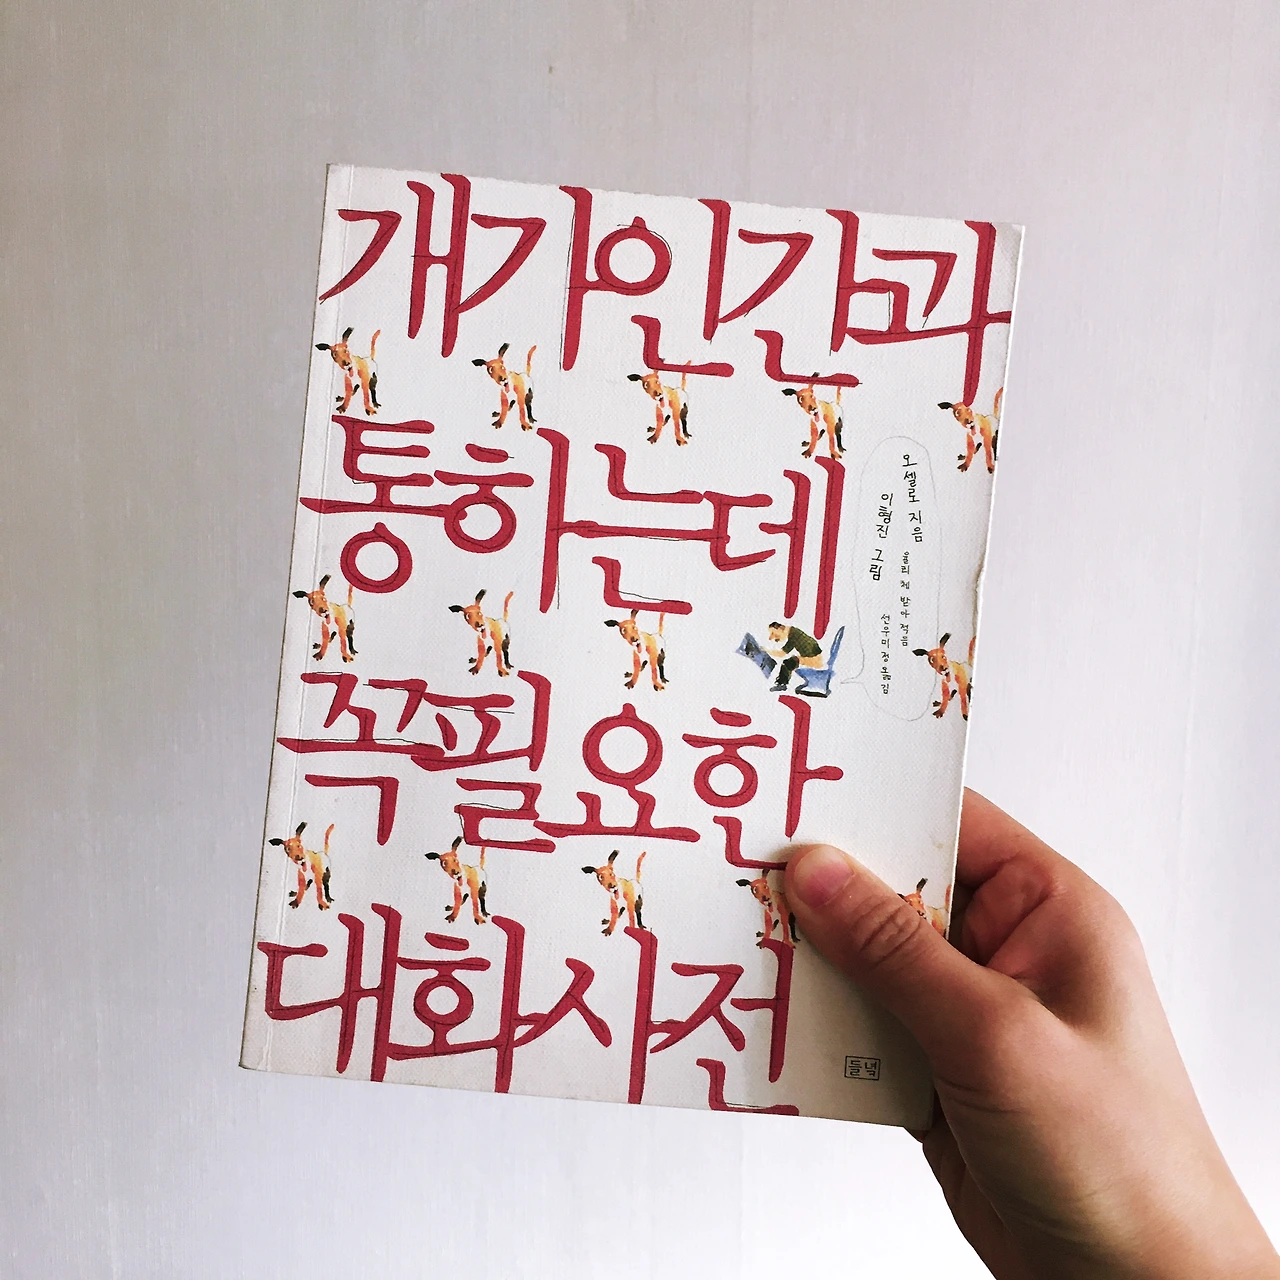 개가 인간과
통하는데
꼭 필요한
대화사전
오셀로 지음
울리케 받아 적음
이형진 그림
선우미정 옮김
들녘